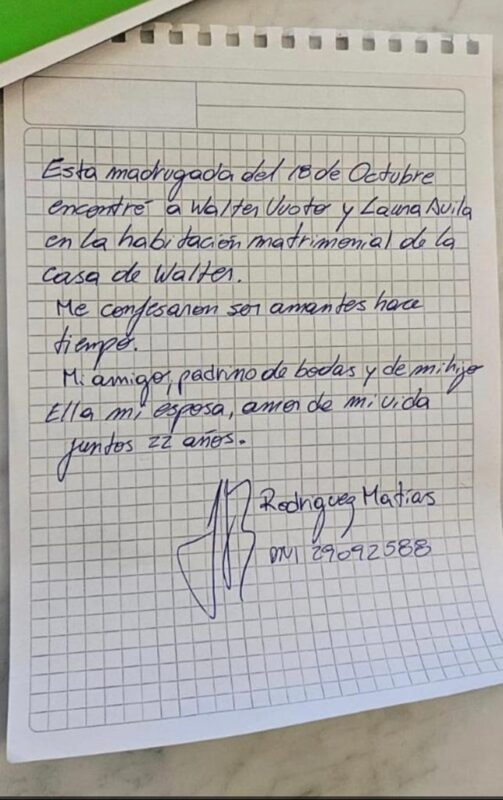 Esta madrugada del 18 de Octubre
encontré a Walter Vuoto y Laura Avila
en la habitación matrimonial de la
casa de Walter.
Me confesaron ser amantes hace
tiempo.
Mi amigo, padrino de bodas y de mi hijo
Ella mi esposa, amor de mi vida
juntos 22 años.
Rodriguez Matias
DNI 29092588